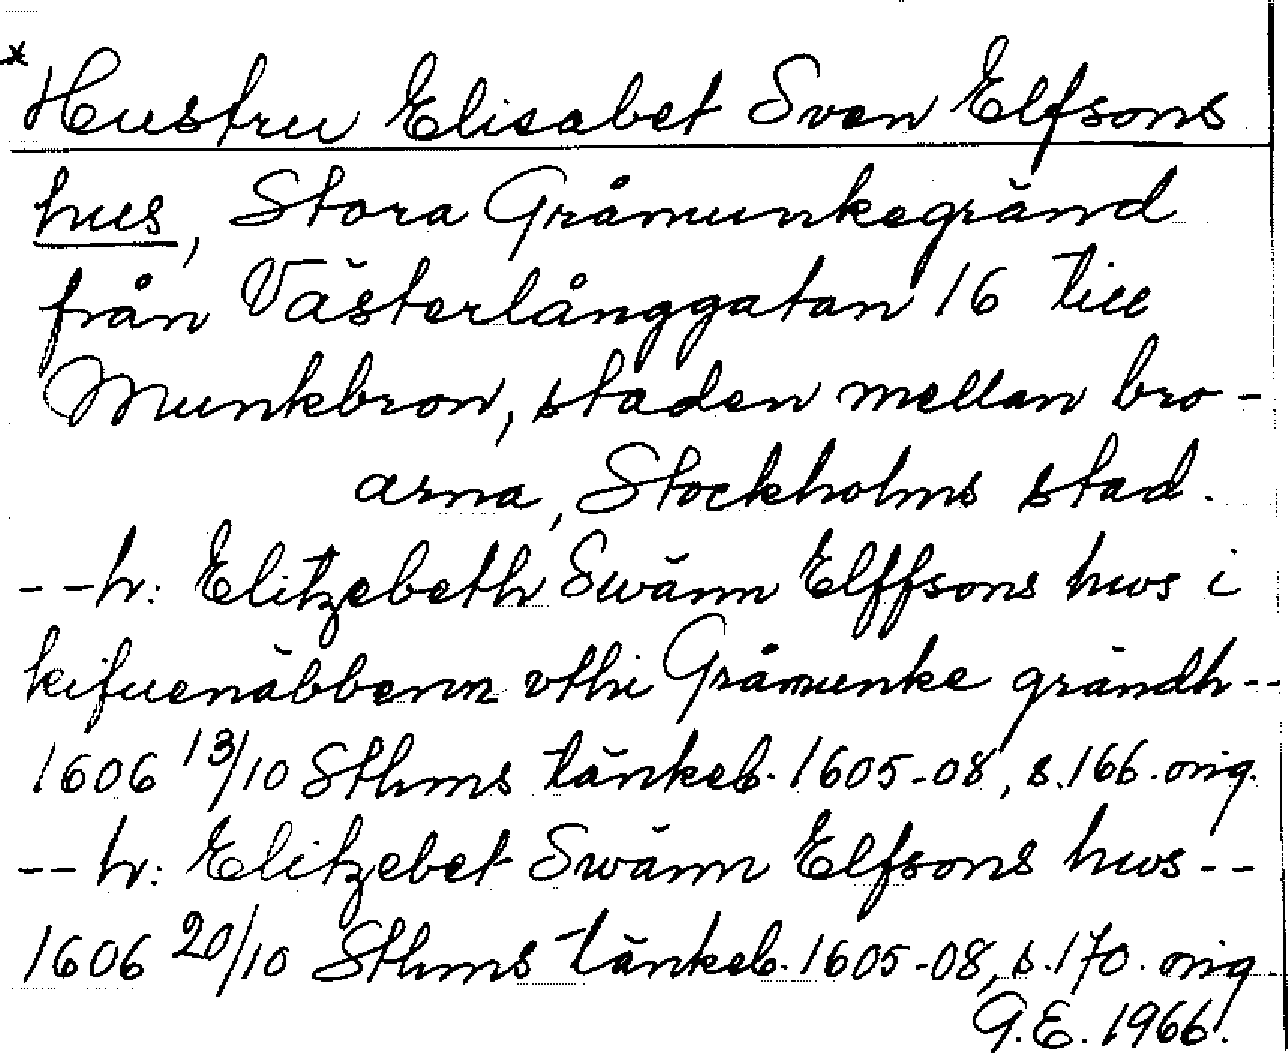 * Hustru Elisabet Sven Elfsons
hus, Stora Gråmunkegränd
från Västerlånggatan 16 till
Munkbron, staden mellan bro-
arna, Stockholms stad.
--h: Elitzebeth Swänn Elffsons hws i
kifuenäbbenn vthi Gråmunke grändh--
1606 13/10 Sthms tänkeb. 1605-08, s.166. orig.
--h: Elitzebet Swänn Elfsons hws--
1606 20/10 Sthms tänkeb. 1605-08, s.170. orig
G.E. 1966.